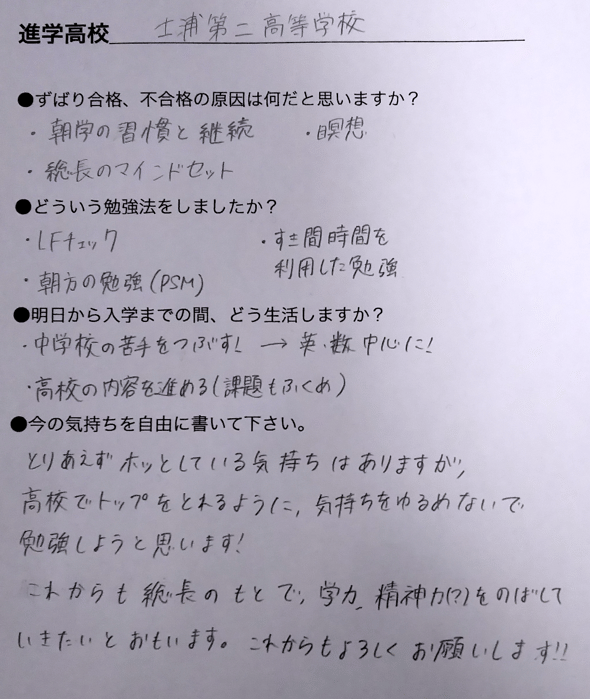 進学高校 土浦第二高等学校
●ずばり合格、不合格の原因は何だと思いますか？
・朝学の習慣と継続 ・瞑想
・総長のマインドセット
●どういう勉強法をしましたか？
・LFチェック ・すき間時間を
利用した勉強
・朝方の勉強(PSM)
●明日から入学までの間、どう生活しますか？
・中学校の苦手をつぶす! → 英・数中心に!
・高校の内容を進める(課題もふくめ)
●今の気持ちを自由に書いて下さい。
とりあえずホッとしている気持ちはありますが、
高校でトップをとれるように、気持ちをゆるめないで
勉強しようと思います!
これからも総長のもとで、学力、精神力(?)をのばして
いきたいとおもいます。これからもよろしくお願いします!!